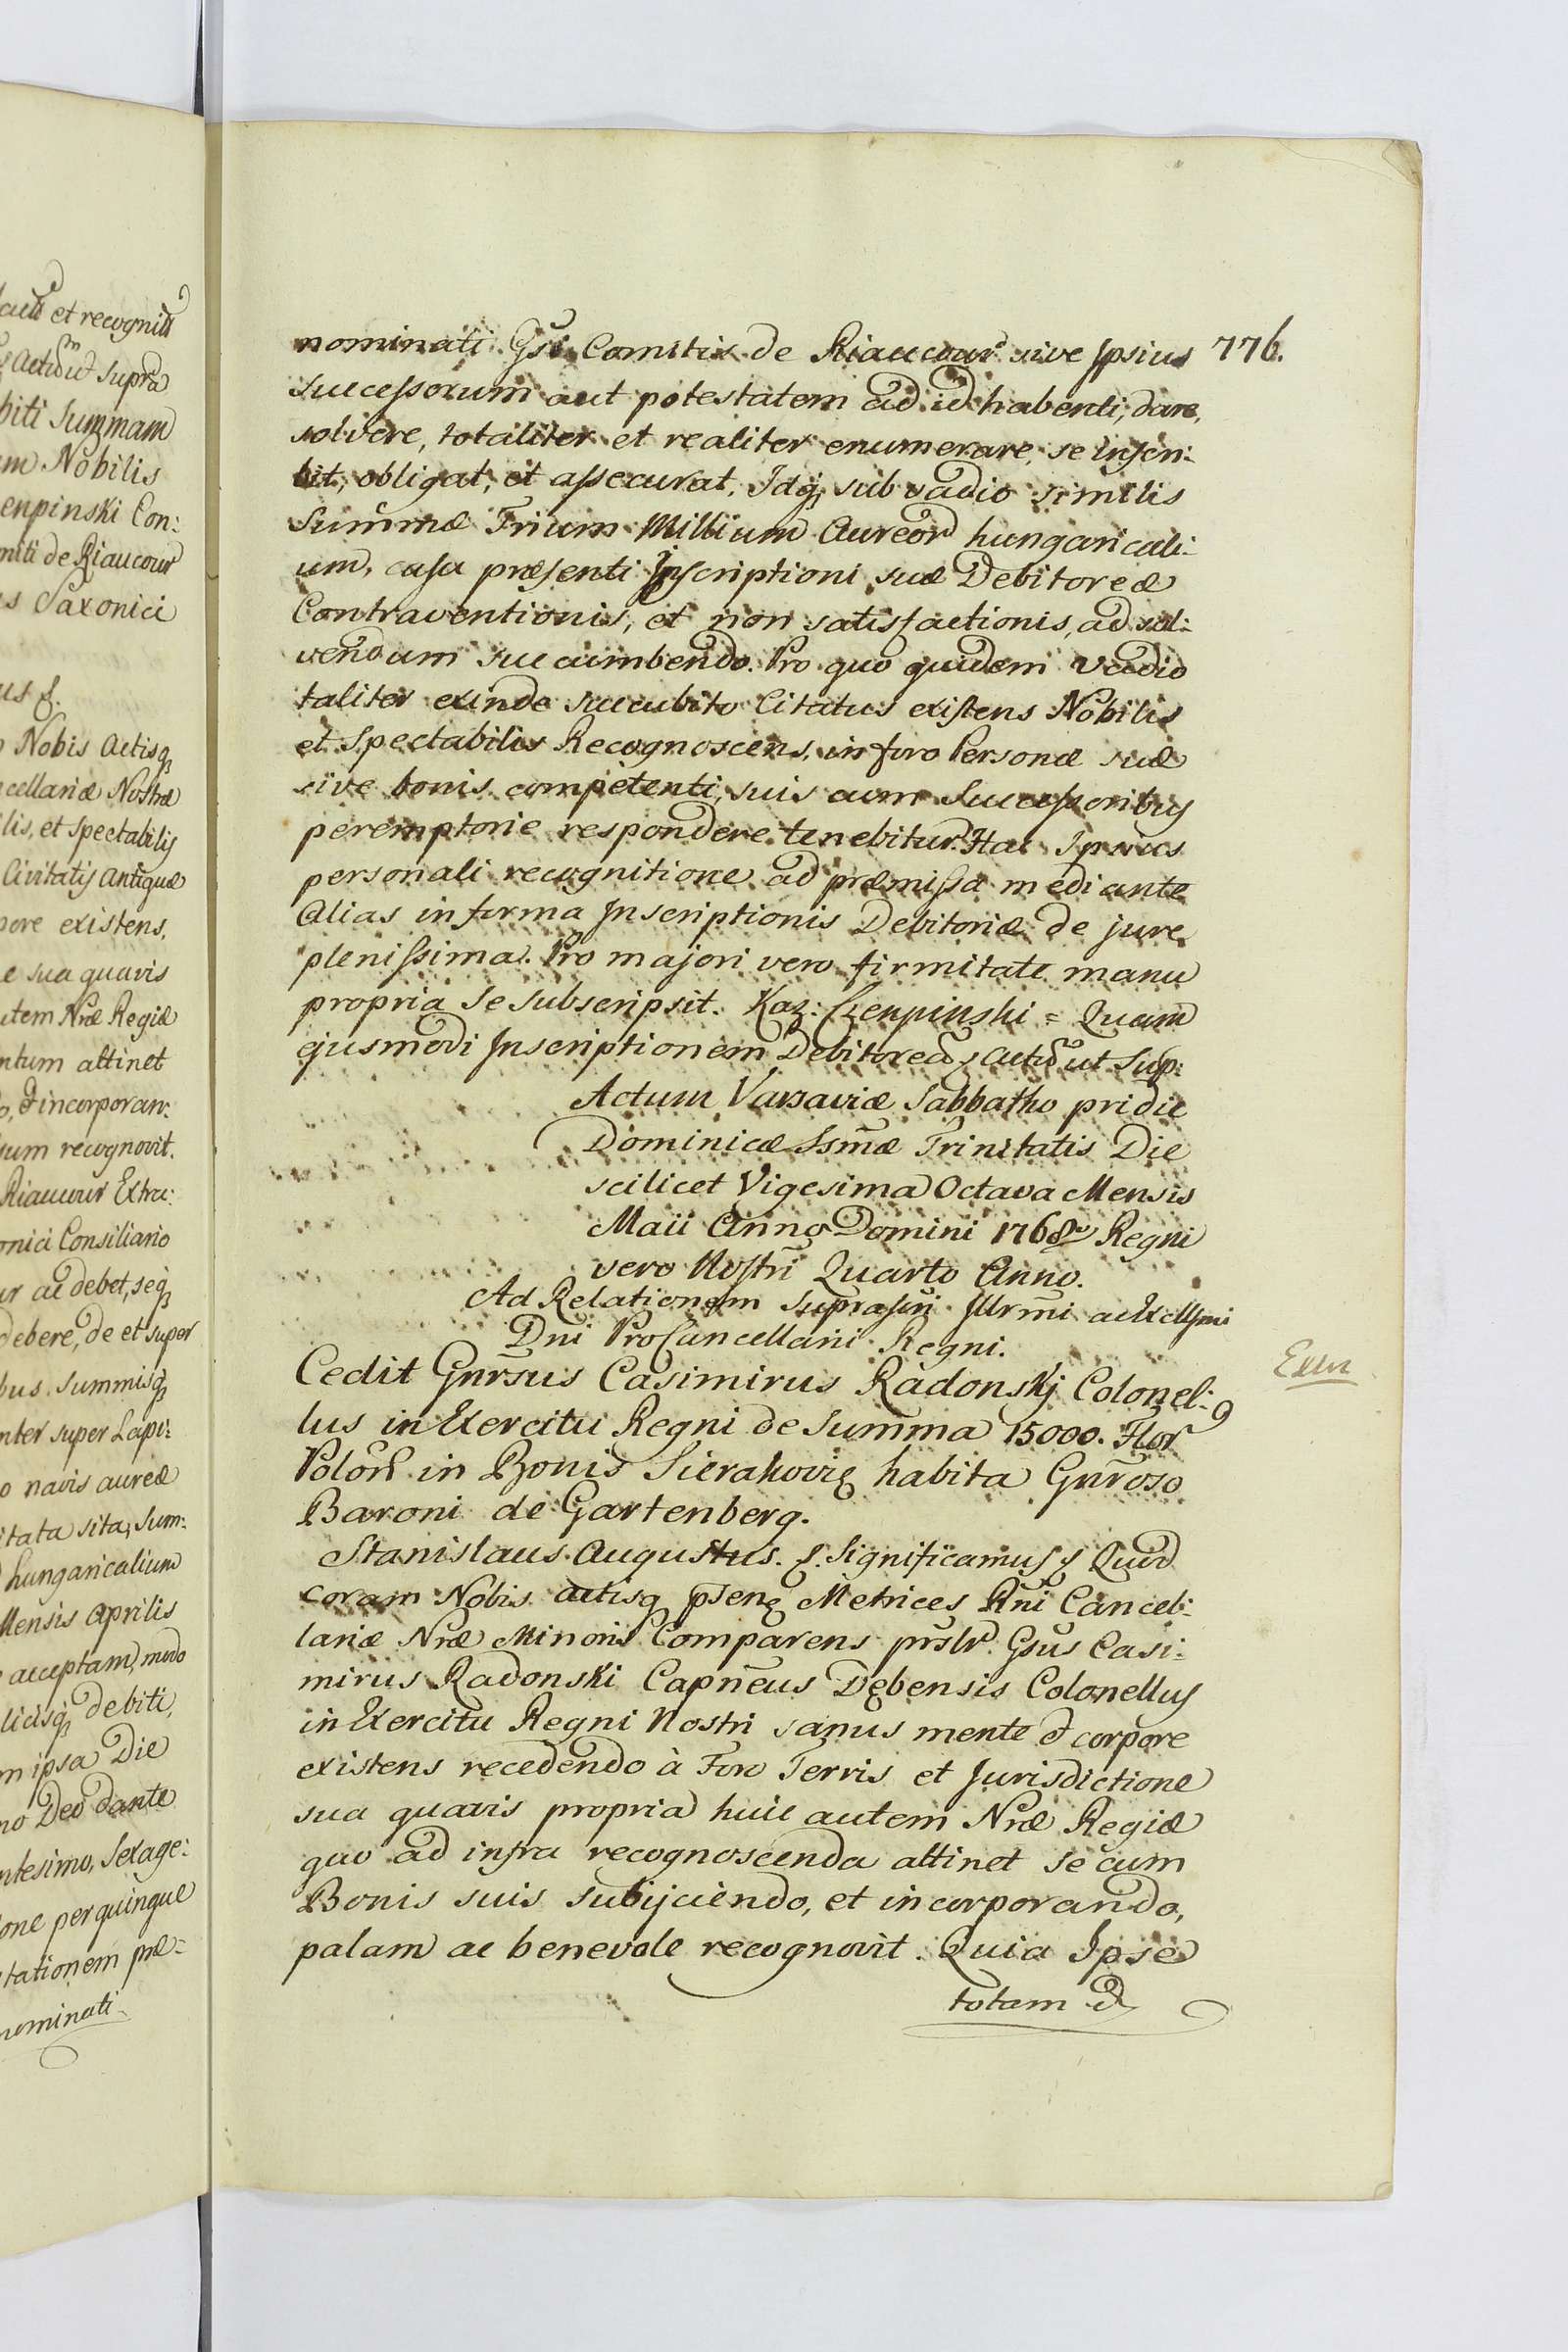 auū et recognitū
Actū ut supra
biti Summam
m Nobilis
enpinski Con:
miti de Riaucour
s Saxonici
us &.
Nobis Actisq
cellariæ Nostræ
lis, et spectabilis
Civitatis Antiquæ
pore existens,
e sua quavis
utem Nræ Regiæ
ntum attinet
o, et incorporan:
sum recognovit.
Riaucour Extra:
onici Consiliario
ur ac debet, seq
debere, de et super
bus summisq
nter super Lapi:
o navis aureæ
itata sita, Sum:
hungaricalium
Mensis Aprilis
acceptam, modo
licisq debiti,
m ipsa Die
no Deo dante
ntesimo, Sexage:
one per quinque
tationem præ:
nominati
776.
nominati Gsi Comitis de Riaucour sive Ipsius
Successorum aut potestatem ad id habenti, dare,
solvere, totaliter et realiter enumerare, se inscri:
bit, obligat, et assecurat, Idq sub vadio similis
Summæ Trium Millium Aureor hungaricali:
um, casu præsenti Inscriptioni suæ Debitoreæ
Contraventionis, et non satisfactionis, ad sol:
vendum succumbendo. Pro quo quidem Vadio
taliter exinde succubito Citatus existens Nobilis
et Spectabilis Recognoscens, in foro Personæ suæ
sive bonis competenti, suis cum Successoribus
peremptorie respondere tenebitur. Hac Ipsius
personali recognitione ad præmissa mediante
Alias in forma Inscriptionis Debitoriæ de jure
plenissima. Pro majori vero firmitate manu
propria se subscripsit. Kaz: Czenpinski = Quam
ejusmodi Inscriptionem Debitoreā & Actū ut Sup:
Actum Varsaviæ Sabbatho pridie
Dominicæ Ssmæ Trinitatis Die
scilicet Vigesima Octava Mensis
Maii Anno Domini 1768vo Regni
vero Nostri Quarto Anno.
Ad Relationem suprascri Illrmi ac Excellsmi
Dni ProCancellarii Regni.
Cedit Gnrsus Casimirus Radonskj Colonel: 9
lus in Exercitu Regni de Summa 15000. Flor
Polon in Bonis Sierakovię habita Gnroso
Baroni de Gartenberg.
Stanislaus Augustus. &. Significamus & Quod
coram Nobis actisq pseną Metrices Rni Cancel:
lariæ Nræ Minoris Comparens prslr Gsus Casi:
mirus Radonski Capneus Dębensis Colonellus
in Exercitu Regni Nostri sanus mente & corpore
existens recedendo à Foro Terris et Jurisdictione
sua quavis propria huic autem Nræ Regiæ
quo ad infra recognoscenda attinet se cum
Bonis suis subijciendo, et incorporando,
palam ac benevole recognovit. Quia Ipse
totam &